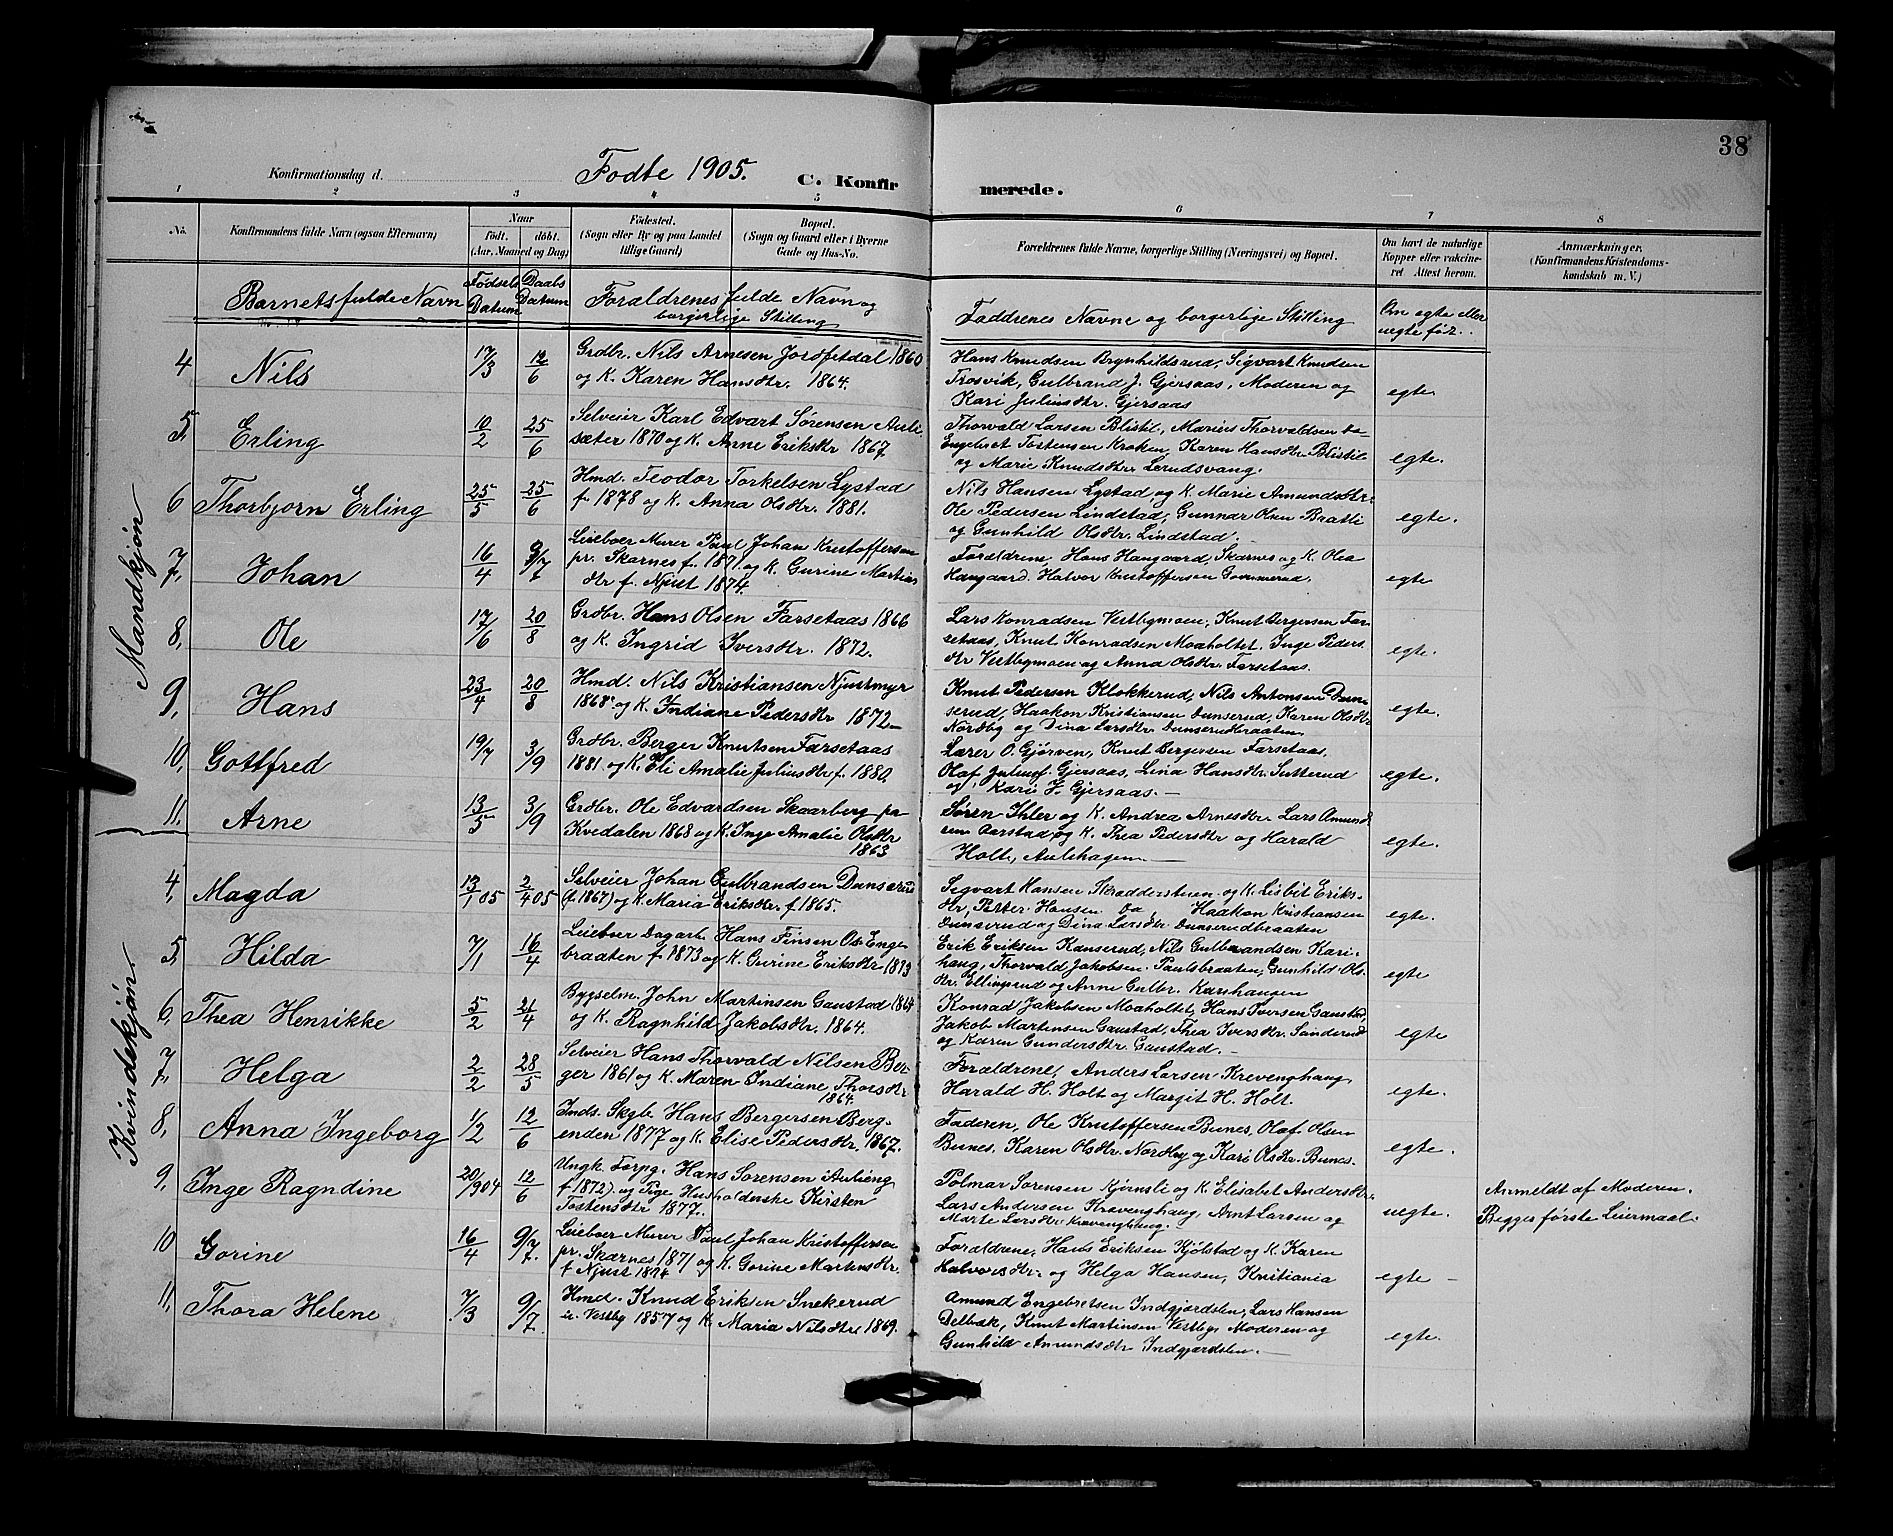 38
Konfirmationsdag d. Fødte 1905. C. Konfirmerede.
1 2 3 4 5 6 7 8
No. Konfirmandens fulde Navn (ogsaa Efternavn) Naar født. døbt. (Aar, Maaned og Dag) Fødested. (Sogn eller By og paa Landet tillige Gaard) Bopæl. (Sogn og Gaard eller i Byerne Gade og Hus-No. Forældrenes fulde Navne, borgerlige Stilling (Næringsvei) og Bopæl. Om havt de naturlige Kopper eller vakcineret. Attest herom. Anmærkninger. (Konfirmandens Kristendomskundskab m. V.)
Barnets fulde Navn Fødsels Datum Daabs Datum Forældrenes fulde Navn og borgerlige Stilling Faddrenes Navne og borgerlige Stilling Om egte eller uegte før.
Mandkjøn
4 Nils 17/3 12/6 Grdbr. Nils Arnesen Jordfetdal 1860
og K. Karen Hansdtr. 1864.
Hans Knudsen Brynhildsrud, Sigvart Knudsen
Trosvik, Gulbrand J. Gjersaas, Moderen og
Kari Juliusdtr. Gjersaas egte.
5, Erling 10/2 25/6 Selveier Karl Edvart Sørensen Aule
sæter 1870 og K. Arne Eriksdtr 1867
Thorvald Larsen Blistil, Marius Thorvaldsen do
Engebret Tostensen Kroken, Karen Hansdtr. Blistil
og Marie Knudsdtr. Lerudsvang. egte.
6 Thorbjørn Erling 25/5 25/6 Hmd. Teodor Torkelsen Lystad
f. 1878 og K. Anna Olsdtr. 1881.
Nils Hansen Lystad og K. Marie Amundsdtr.
Ole Pedersen Lindstad, Gunnar Olsen Bratli
og Gunhild Olsdtr. Lindstad. egte.
7, Johan 16/4 9/7 Leieboer Murer Paul Johan Kristoffersen
pr. Skarnes f. 1871 og K. Gurine Martins
dtr f. Njust 1874.
Forældrene, Hans Haugaard, Skarnes og K. Olea
Haugaard. Halvor Kristoffersen Gommerud. egte
8, Ole 17/6 20/8 Grdbr. Hans Olsen Farsetaas 1866
og K. Ingrid Iversdtr. 1872.
Lars Konradsen Vestbymoen, Knut Bergersen Far-
setaas, Knut Konradsen Moaholtet, Inge Peders
dtr Vestbymoen og Anna Olsdtr. Farsetaas. egte.
9, Hans 23/4 20/8 Hmd. Nils Kristiansen Njustmyr
1868 og K. Indiane Pedersdtr 1872
Knut Pedersen Klokkerud, Nils Antonsen Dun-
serud, Haakon Kristiansen Dunserud, Karen Olsdtr
Nordby og Dina Larsdtr. Dunserudbraaten egte.
10, Gottfred 19/7 3/9 Grdbr. Berger Knutsen Farsetaas
1881 og K. Eli Amalie Juliusdtr f. 1880.
Lærer O. Gjørven, Knut Bergersen Farsetaas,
Olaf Juliusf. Gjersaas, Lina Hansdtr. Sutterud
og Kari J. Gjersaas. egte.
11, Arne 13/5 3/9 Grdbr. Ole Edvardsen Skaarberg pa
Kvedalen 1868 og K. Inge Amalie Olsdtr
1863
Søren Ihler og K. Andrea Arnesdtr. Lars Amund
sen Aarstad og K. Thea Pedersdtr og Harald
Holt, Aulihagen egte.
Kvindekjøn
4, Magda 13/1 05 2/4 05 Selveier Johan Gulbrandsen Dunserud
(f. 1867) og K. Maria Eriksdtr. f. 1865.
Sigvart Hansen Skræddersteien og K. Lisbet Eriks-
dtr, Petter Hansen do, Haakon Kristiansen
Dunserud og Dina Larsdtr Dunserudbraaten egte.
5, Hilda 7/1 16/4 Leieboer Dagarb. Hans Finsen Os Enge
braaten f. 1873 og K. Gurine Eriksdtr 1873
Erik Eriksen Kanserud, Nils Gulbrandsen Kari-
haug, Thorvald Jakobsen Paulsbraaten, Gunhild Ols-
dtr. Ellingsrud og Anne Gulbr. Karihaugen egte
6, Thea Henrikke 5/2 21/4 Bygselm. John Martinsen Gaustad 1864
og K. Ragnhild Jakobsdtr. 1864.
Konrad Jakobsen Moaholtet, Hans Iversen Gaustad,
Jakob Martinsen Gaustad, Thea Iversdtr. Sanderud
og Karen Gundersdtr. Gaustad. egte
7, Helga 2/2 28/5 Selveier Hans Thorvald Nilsen Ber-
ger 1861 og K. Maren Indiane Thorsdtr
1864.
Forældrene, Anders Larsen Krevenghaug
Harald H. Holt og Margit H. Holt. egte.
8, Anna Ingeborg 1/2 12/6 Inds. Skgb. Hans Bergersen Berg-
enden 1877 og K. Elise Pedersdtr. 1867.
Faderen, Ole Kristoffersen Bunes, Olaf Olsen
Bunes, Karen Olsdtr. Nordby og Kari Olsdtr. Bunes. egte.
9, Inge Ragndine 20/1 904 12/6 Ungk. Forpg. Hans Sørensen Aulieng
f. 1872) og Pige Husholderske Kirsten
Tostensdtr 1877.
Polmar Sørensen Kjernsli og K. Elisabet Andersdtr.
Lars Andersen Krevenghaug, Arnt Larsen og
Marte Larsdtr Krevenghaug. uegte. Anmeldt af Moderen.
Begges første Leiermaal.
10 Gorine 16/4 9/7. Leieboer Murer Paul Johan Kristoffersen
pr. Skarnes 1871 og K. Gorine Martinsdtr.
f. Njust 1874
Forældrene, Hans Eriksen Kjølstad og K. Karen
Halvorsdtr. og Helga Hansen, Kristiania egte
11, Thora Helene 7/3 9/7 Hmd. Knud Eriksen Snekerud
u. Vestby 1857 og K. Maria Nilsdtr 1869.
Amund Engebretsen Indgjærdslen, Lars Hansen
Delbæk, Knut Martinsen Vestby, Moderen og
Gunhild Amundsdtr Indgjærdslen. egte.